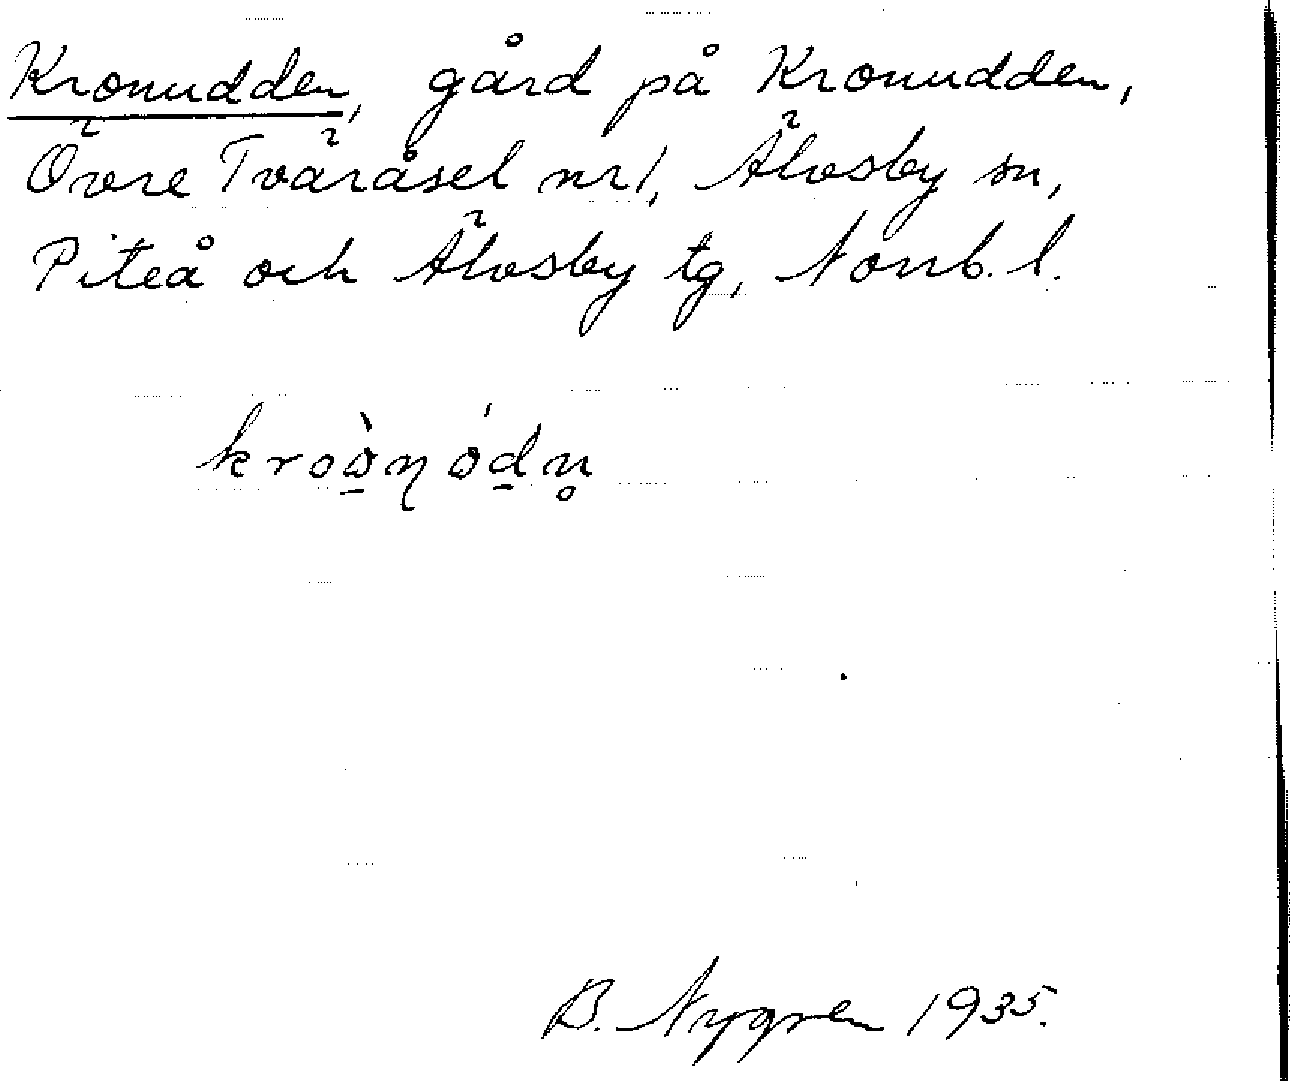 Kronudden, gård på Kronudden,
Övre Tväråsel nr 1, Älvsby sn,
Piteå och Älvsby tg, Norrb. l.
kroòn ódn̥
B. Nygren 1935.